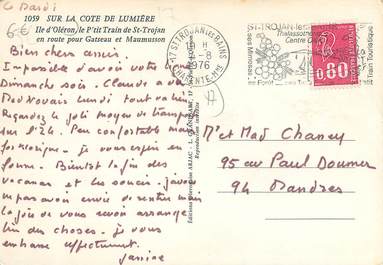 1059 SUR LA COTE DE LUMIÈRE
Ile d'Oléron, le P'tit Train de St-Trojan
en route pour Gatseau et Maumusson
6€
17 ST TROJAN LES BAINS
18 H
-8
1976
CHARENTE-MME
ST-TROJAN-les-
Thalassothérapie
Centre
Forêt
Train Touristique
0,80
Bien chers amis.
Impossible d'avoir votre ligne
Dimanche soir. Claudi a
Lundi tout va bien
Regardez le joli moyen de transport
sur l'Ile. Peu confortable mais
folklorique. Je vous espère en
forme. Bientôt la fin des
vacances et les soucis. J'aurais
pas avoir envie de rentrer mais
la joie de vous avoir arrange
bien des choses. Je vous
embrasse affectueusement.
Janine
M et Mad Chaney
95 av Paul Doumer
94 Mandres